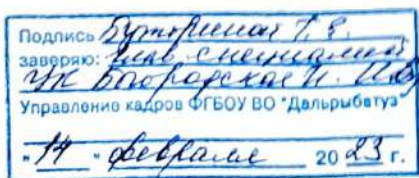 Подпись Буториной Т. Е.
заверяю: спец
УК Богородская И.
Управление кадров ФГБОУ ВО "Дальрыбвтуз"
" 14 " февраля 20 23 г.